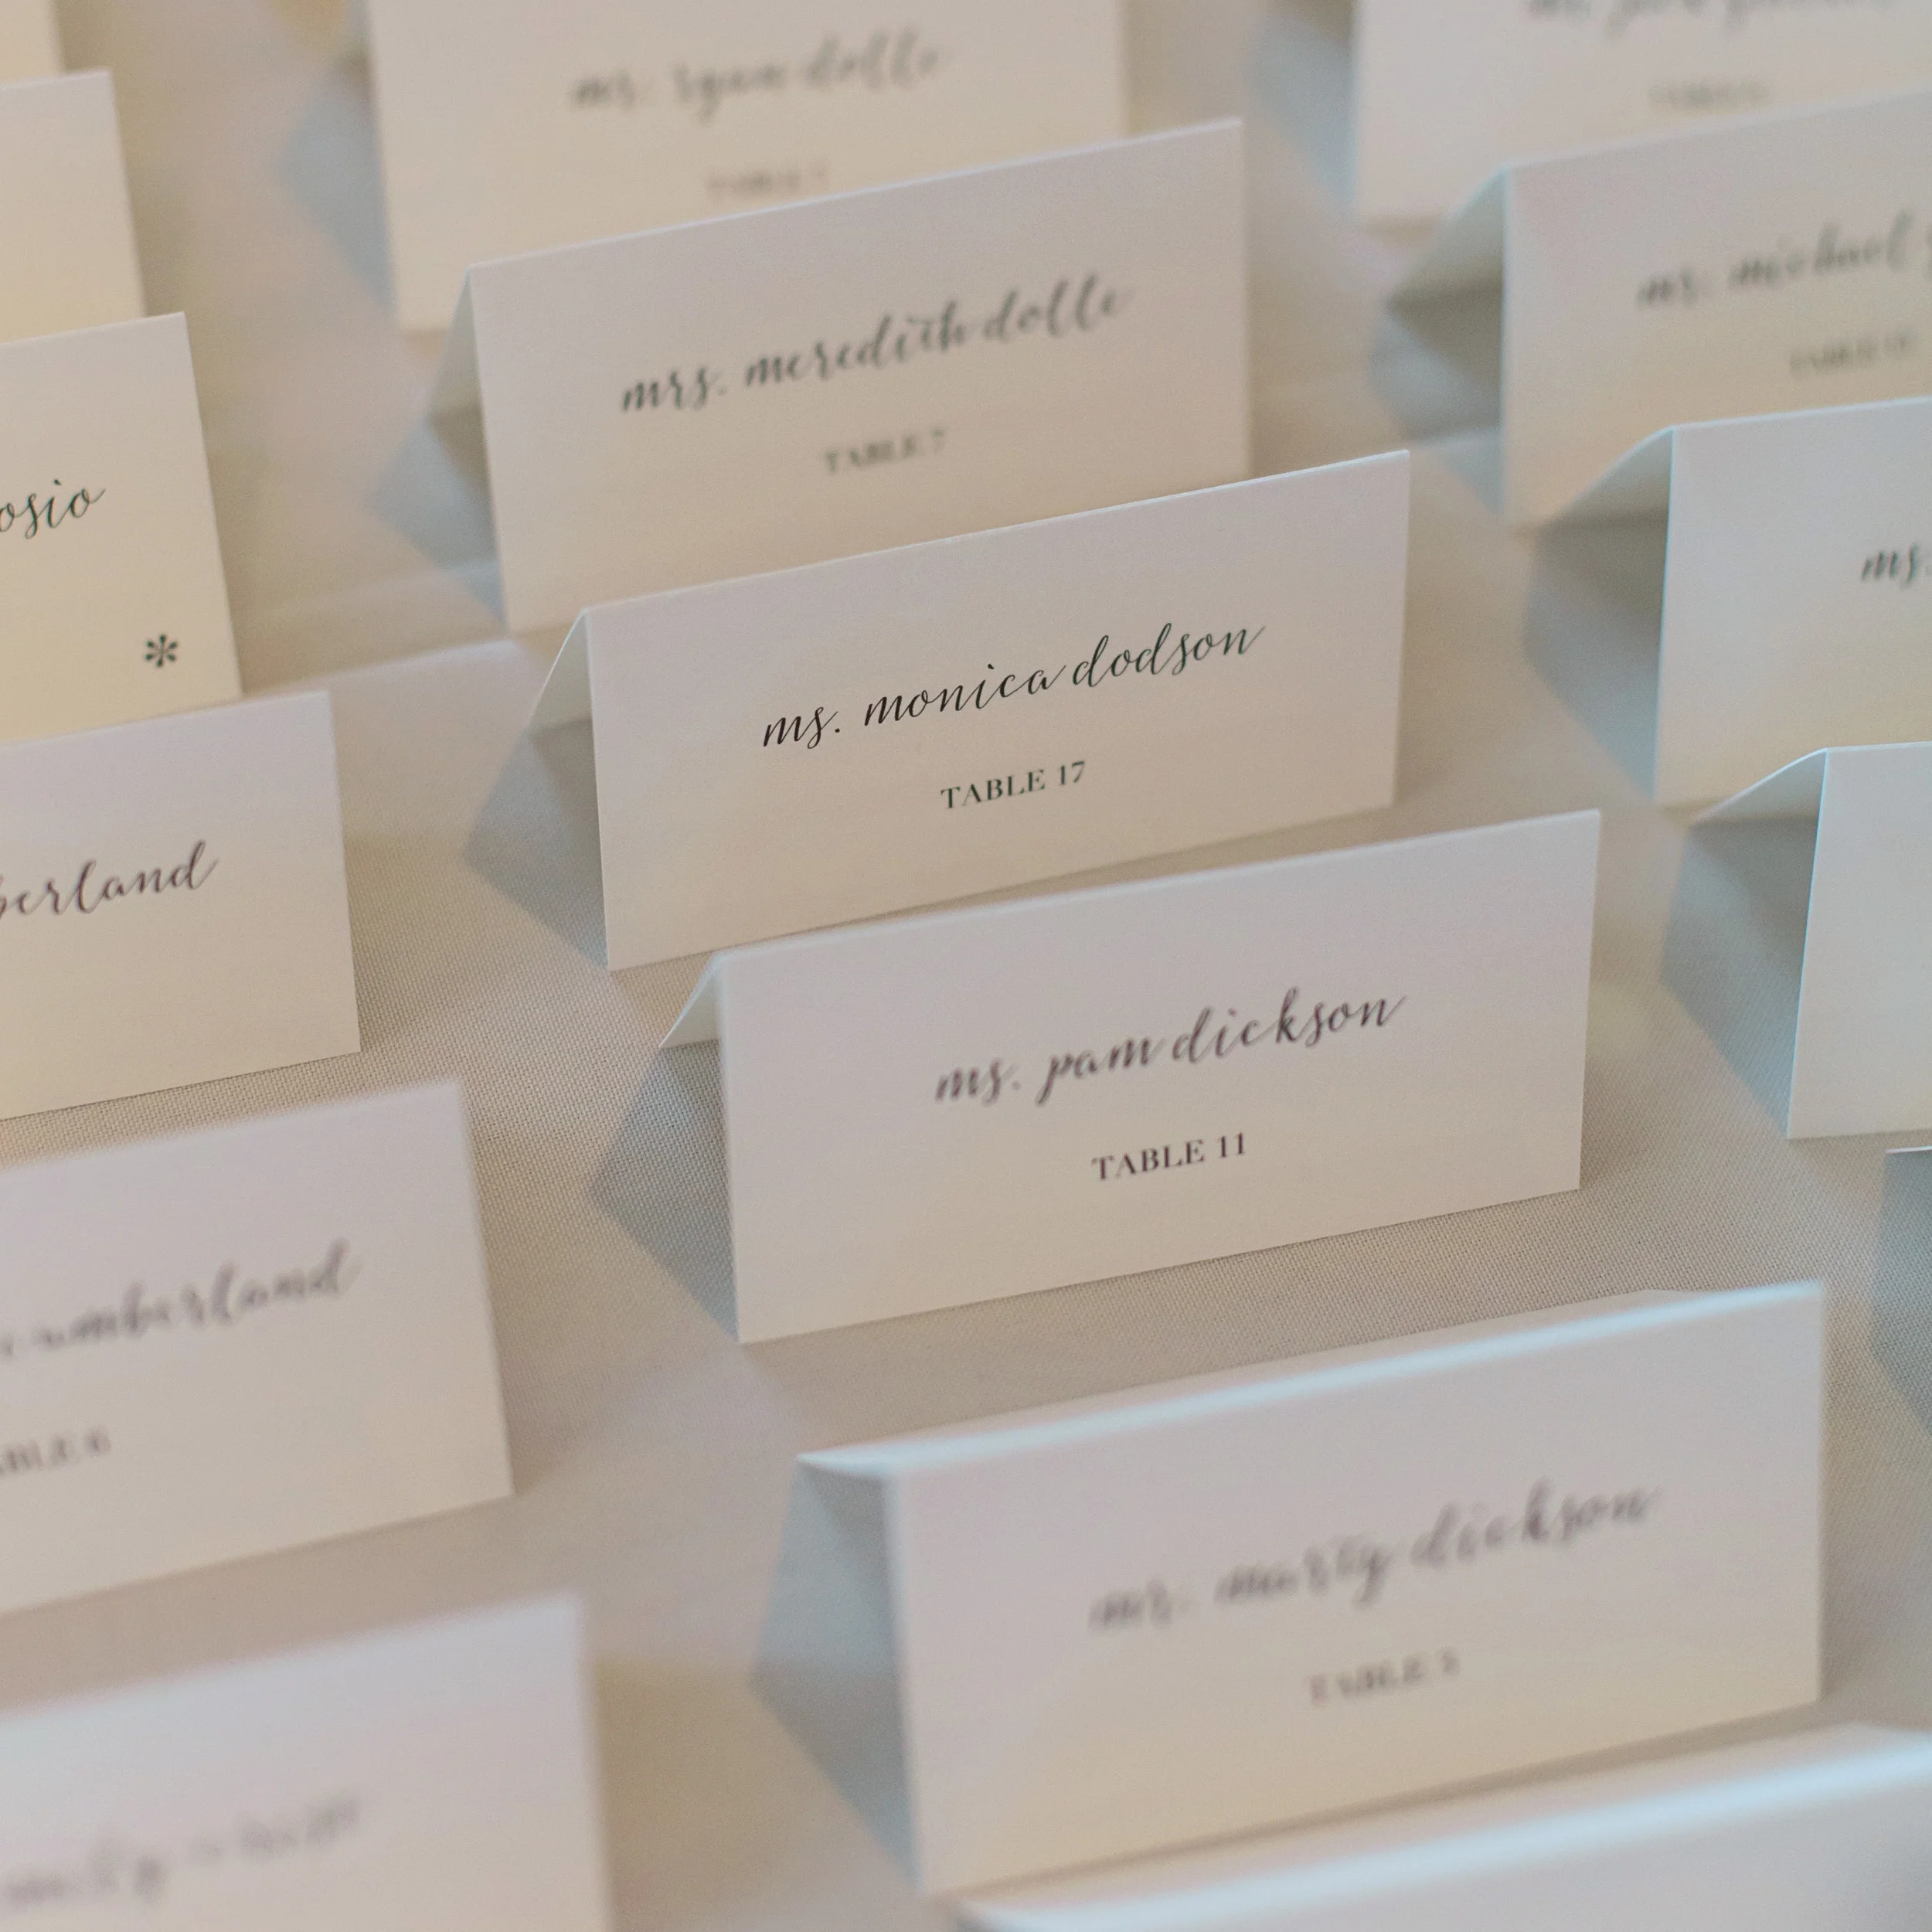 mr. ryan dolle
TABLE 7
mrs. meredith dolle
TABLE 7
mr. michael
TABLE
osio
*
ms.
ms. monica dodson
TABLE 17
berland
ms. pam dickson
TABLE 11
cumberland
ABLE 6
mr. marty dickson
TABLE 5